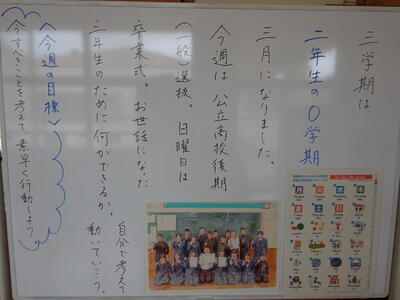 三学期は
二年生の０学期
三月になりました。
今週は 公立高校後期
(一般)選抜。日曜日は
卒業式。お世話になった
三年生のために何ができるか。
自分で考えて
動いていこう。
〈今週の目標〉
今すべきことを考えて、素早く行動しよう
月 火 水 木
金 土 日